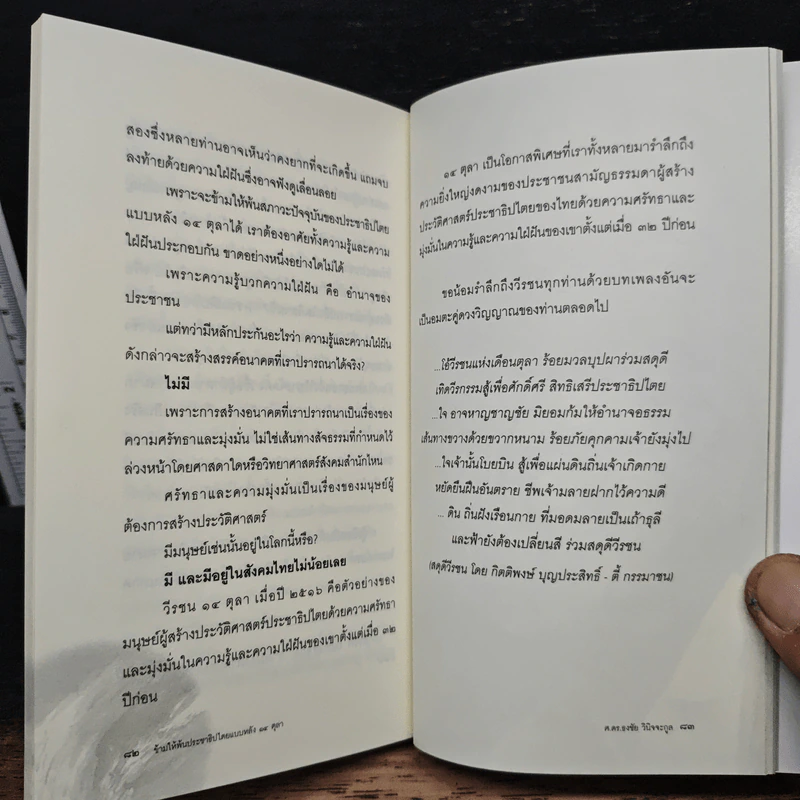 สองซึ่งหลายท่านอาจเห็นว่าคงยากที่จะเกิดขึ้น แถมจบ
ลงท้ายด้วยความใฝ่ฝันซึ่งอาจฟังดูเลื่อนลอย
เพราะจะข้ามให้พ้นสภาวะปัจจุบันของประชาธิปไตย
แบบหลัง ๑๔ ตุลาได้ เราต้องอาศัยทั้งความรู้และความ
ใฝ่ฝันประกอบกัน ขาดอย่างหนึ่งอย่างใดไม่ได้
เพราะความรู้บวกความใฝ่ฝัน คือ อำนาจของ
ประชาชน
แต่ทว่ามีหลักประกันอะไรว่า ความรู้และความใฝ่ฝัน
ดังกล่าวจะสร้างสรรค์อนาคตที่เราปรารถนาได้จริง?
ไม่มี
เพราะการสร้างอนาคตที่เราปรารถนาเป็นเรื่องของ
ความศรัทธาและมุ่งมั่น ไม่ใช่เส้นทางสัจธรรมที่กำหนดไว้
ล่วงหน้าโดยศาสดาใดหรือวิทยาศาสตร์สังคมสำนักไหน
ศรัทธาและความมุ่งมั่นเป็นเรื่องของมนุษย์ผู้
ต้องการสร้างประวัติศาสตร์
มีมนุษย์เช่นนั้นอยู่ในโลกนี้หรือ?
มี และมีอยู่ในสังคมไทยไม่น้อยเลย
วีรชน ๑๔ ตุลา เมื่อปี ๒๕๑๖ คือตัวอย่างของ
มนุษย์ผู้สร้างประวัติศาสตร์ประชาธิปไตยด้วยความศรัทธา
และมุ่งมั่นในความรู้และความใฝ่ฝันของเขาตั้งแต่เมื่อ ๓๒
ปีก่อน
๘๒ ข้ามให้พ้นประชาธิปไตยแบบหลัง ๑๔ ตุลา
๑๔ ตุลา เป็นโอกาสพิเศษที่เราทั้งหลายมารำลึกถึง
ความยิ่งใหญ่งดงามของประชาชนสามัญธรรมดาผู้สร้าง
ประวัติศาสตร์ประชาธิปไตยของไทยด้วยความศรัทธาและ
มุ่งมั่นในความรู้และความใฝ่ฝันของเขาตั้งแต่เมื่อ ๓๒ ปีก่อน
ขอน้อมรำลึกถึงวีรชนทุกท่านด้วยบทเพลงอันจะ
เป็นอมตะคู่ดวงวิญญาณของท่านตลอดไป
...โอ้วีรชนแห่งเดือนตุลา ร้อยมวลบุปผาร่วมสดุดี
เทิดวีรกรรมสู้เพื่อศักดิ์ศรี สิทธิเสรีประชาธิปไตย
...ใจ อาจหาญชาญชัย มิยอมก้มให้อำนาจอธรรม
เส้นทางขวางด้วยขวากหนาม ร้อยภัยคุกคามเจ้ายังมุ่งไป
...ใจเจ้านั้นโบยบิน สู้เพื่อแผ่นดินถิ่นเจ้าเกิดกาย
หยัดยืนฝืนอันตราย ชีพเจ้ามลายฝากไว้ความดี
... ดิน ถิ่นฝังเรือนกาย ที่มอดมลายเป็นเถ้าธุลี
และฟ้ายังต้องเปลี่ยนสี ร่วมสดุดีวีรชน
(สดุดีวีรชน โดย กิตติพงษ์ บุญประสิทธิ์ - ตี้ กรรมาชน)
ศ.ดร.ธงชัย วินิจจะกูล ๘๓